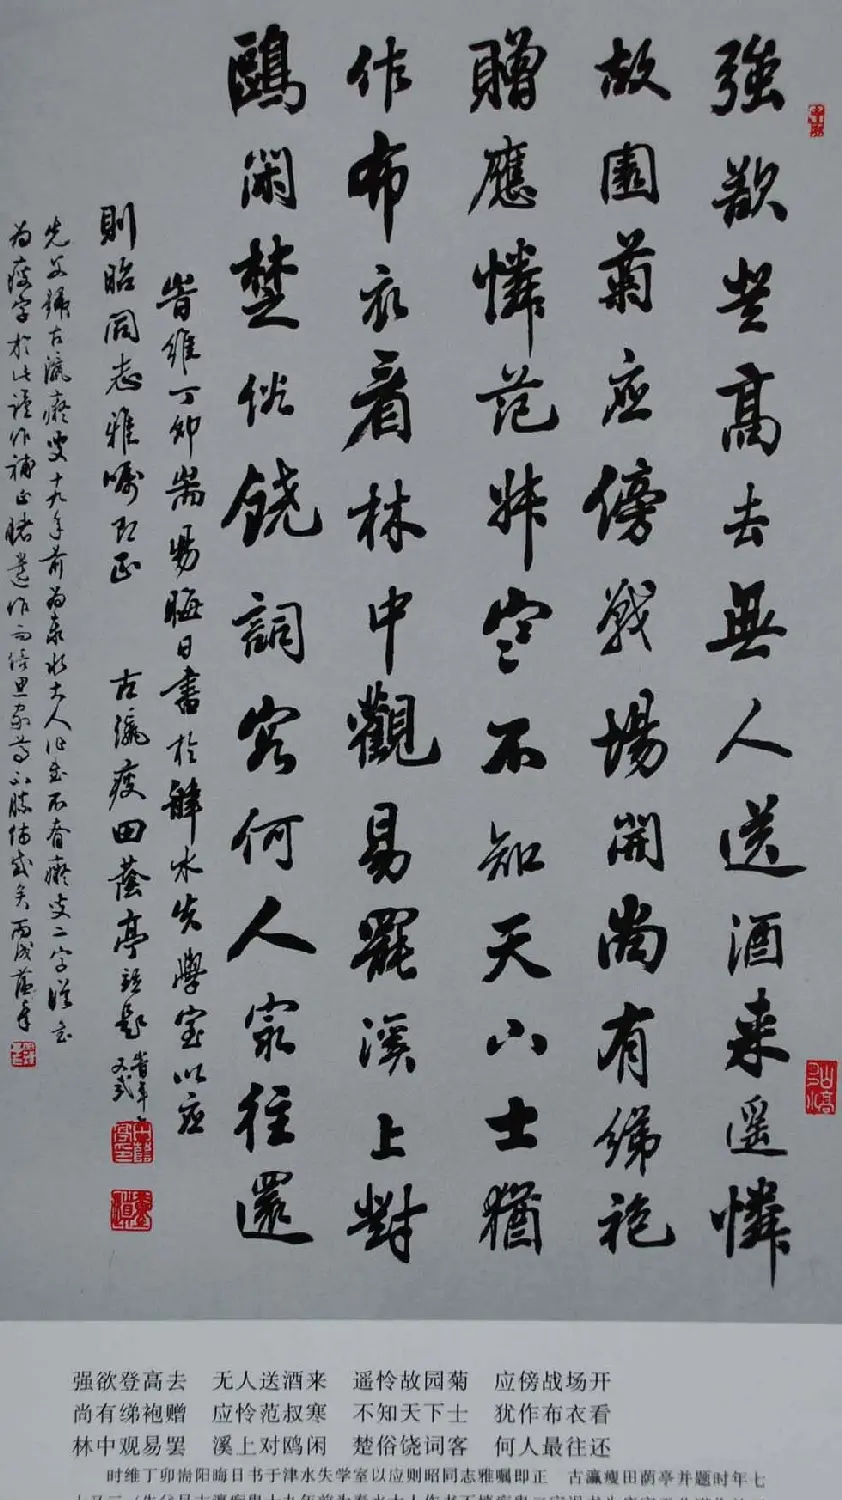 強欲登高去無人送酒来遥憐
故園菊应傍戰場開尚有綈袍
贈應憐范叔寒不知天下士猶
作布衣看林中觀易罷溪上對
鷗閑楚俗饒詞客何人最往還
時維丁卯耑陽晦日書於津水失學室以应
則昭同志雅嘱即正 古瀛瘦田蔭亭並題
强欲登高去 无人送酒来 遥怜故园菊 应傍战场开
尚有绨袍赠 应怜范叔寒 不知天下士 犹作布衣看
林中观易罢 溪上对鸥闲 楚俗饶词客 何人最往还
时维丁卯耑阳晦日书于津水失学室以应则昭同志雅嘱即正 古瀛瘦田荫亭并题时年七